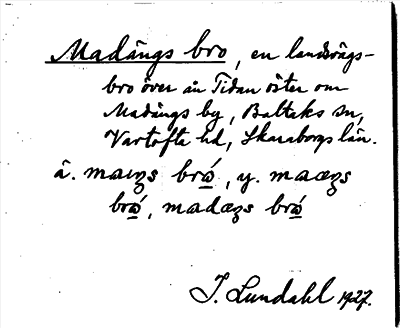 Madängs bro, en landsvägs-
bro över ån Tidan öster om
Madängs by, Baltaks sn,
Vartofta hd, Skaraborgs län.
ä. maŋs brω̲, y. maæŋs
brω̲, madæŋs brω̲
I. Lundahl 1927.